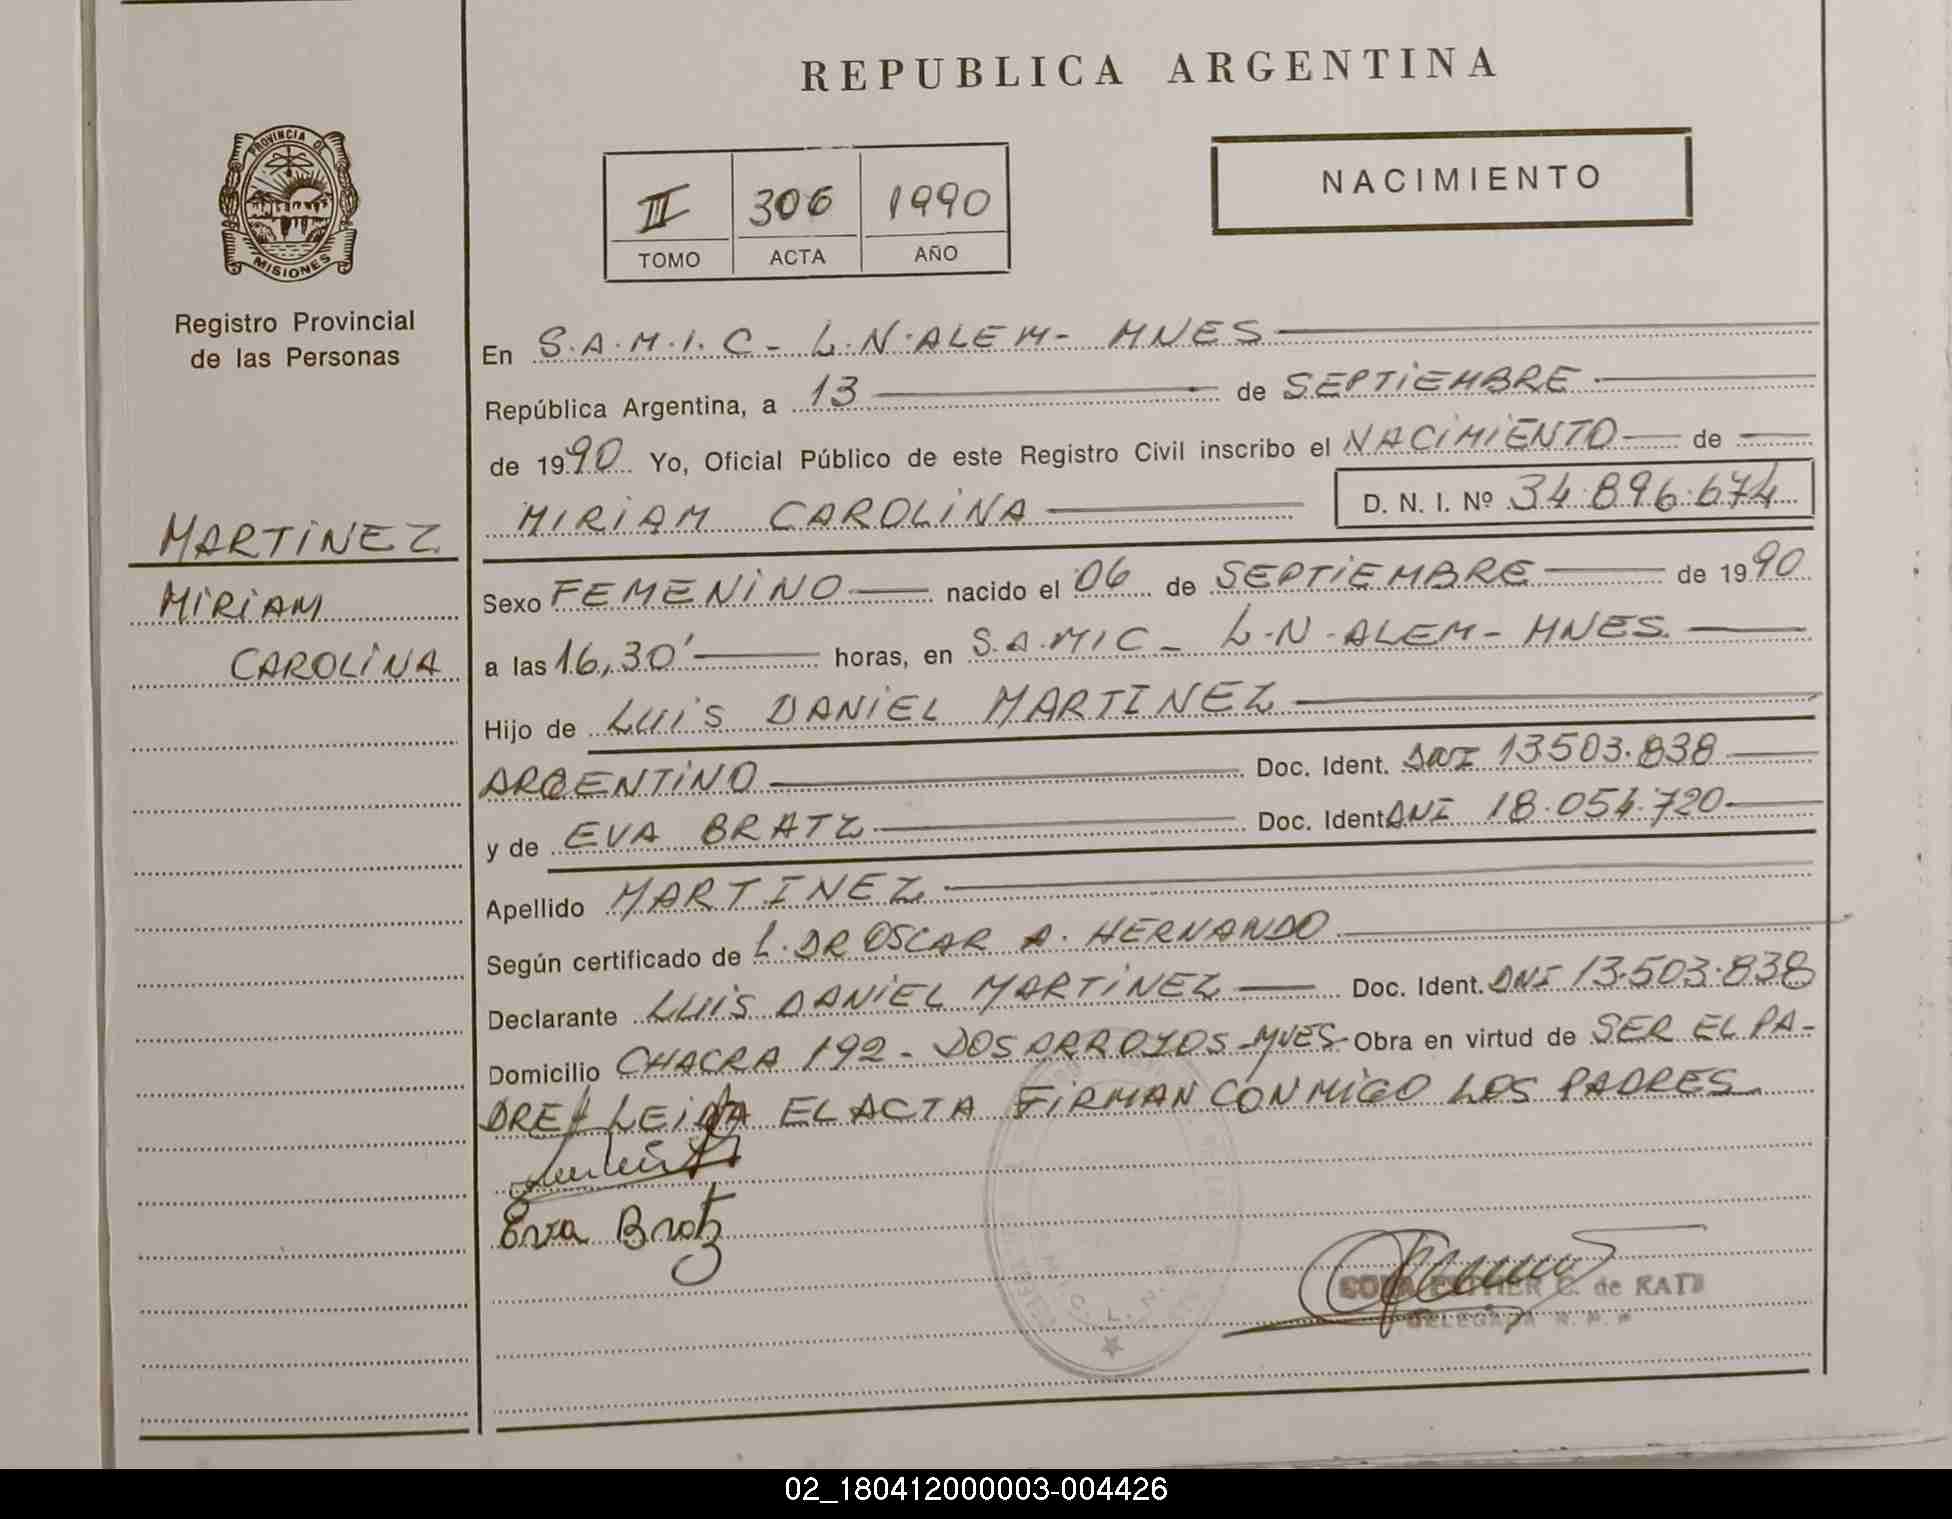 REPUBLICA ARGENTINA
PROVINCIA DE
MISIONES
Registro Provincial
de las Personas
MARTINEZ
MIRIAM
CAROLINA
III 306 1990
TOMO ACTA AÑO
NACIMIENTO
En S.A.M.I.C- L.N.ALEM- MNES
República Argentina, a 13 de SEPTIEMBRE
de 1990 Yo, Oficial Público de este Registro Civil inscribo el NACIMIENTO de
MIRIAM CAROLINA D. N. I. Nº 34.896.674
Sexo FEMENINO nacido el 06 de SEPTIEMBRE de 1990
a las 16,30' horas, en S.A.MIC- L.N.ALEM- MNES
Hijo de LUIS DANIEL MARTINEZ
ARGENTINO Doc. Ident. DNI 13.503.838
y de EVA BRATZ Doc. Ident. DNI 18.054.720
Apellido MARTINEZ
Según certificado de L. DR OSCAR A. HERNANDO
Declarante LUIS DANIEL MARTINEZ Doc. Ident. DNI 13.503.838
Domicilio CHACRA 192- DOS ARROYOS-MNES- Obra en virtud de SER EL PA-
DRE LEIDA EL ACTA FIRMAN CON MIGO LOS PADRES
Eva Bratz
ESTHER C. de
DELEGADA R.P.P
02_180412000003-004426